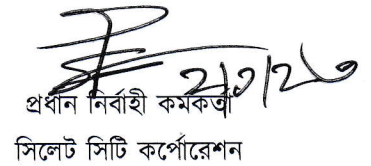 ২/৩/২৩
প্রধান নির্বাহী কর্মকর্তা
সিলেট সিটি কর্পোরেশন